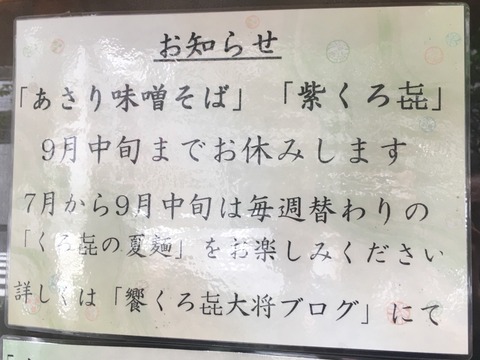 お知らせ
「あさり味噌そば」「紫くろ㐂」
9月中旬までお休みします
7月から9月中旬は毎週替わりの
「くろ㐂の夏麺」をお楽しみください
詳しくは「饗くろ㐂大将ブログ」にて